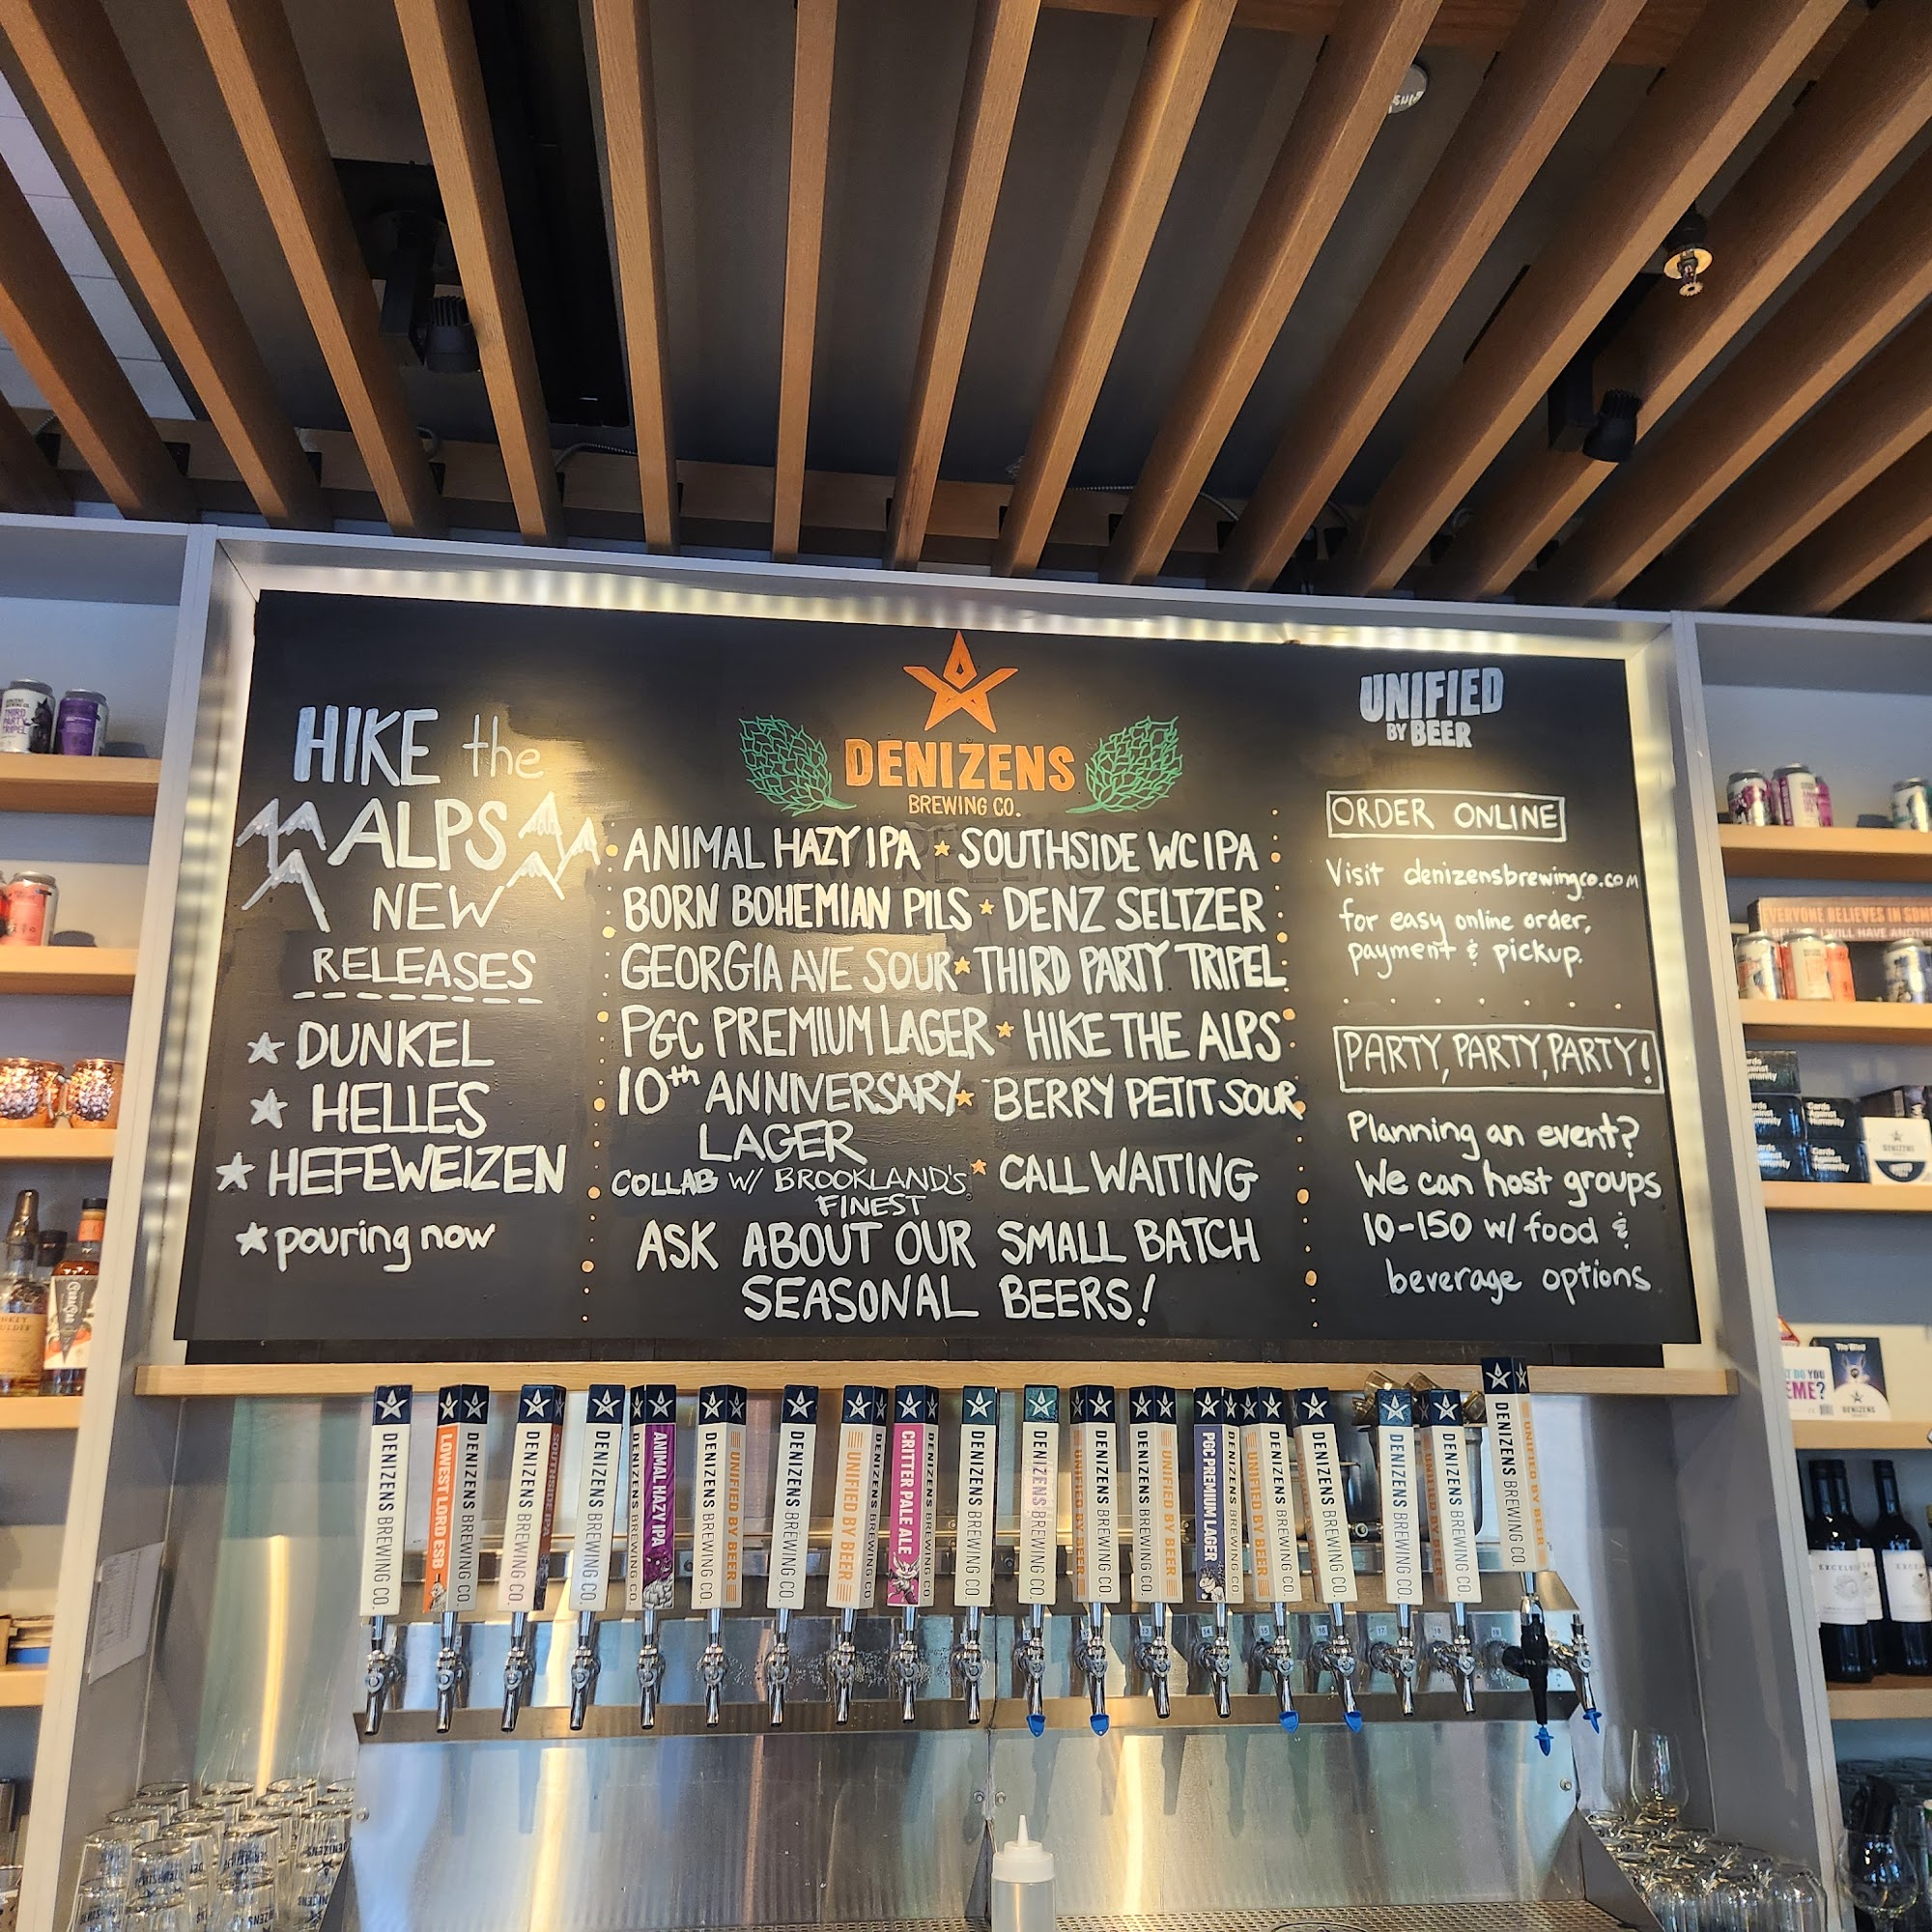 HIKE the
ALPS
NEW
RELEASES
DUNKEL
HELLES
HEFEWEIZEN
pouring now
DENIZENS
BREWING CO.
ANIMAL HAZY IPA ★ SOUTHSIDE WC IPA
BORN BOHEMIAN PILS ★ DENZ SELTZER
GEORGIA AVE SOUR ★ THIRD PARTY TRIPEL
PGC PREMIUM LAGER ★ HIKE THE ALPS
10th ANNIVERSARY ★ BERRY PETIT SOUR
LAGER
COLLAB W/ BROOKLAND'S ★ CALL WAITING
FINEST
ASK ABOUT OUR SMALL BATCH
SEASONAL BEERS!
UNIFIED
BY BEER
ORDER ONLINE
Visit denizensbrewingco.com
for easy online order,
payment & pickup.
PARTY, PARTY, PARTY!
Planning an event?
We can host groups
10-150 w/ food &
beverage options
THIRD
PARTY
TRIPEL
EVERYONE BELIEVES IN
I WILL HAVE
Cards
Against
Humanity
DENIZENS BREWING CO.
LOWEST LORD ESB
DENIZENS BREWING CO.
DENIZENS BREWING CO.
SOUTHSIDE IPA
DENIZENS BREWING CO.
DENIZENS BREWING CO.
ANIMAL HAZY IPA
DENIZENS BREWING CO.
UNIFIED BY BEER
DENIZENS BREWING CO.
UNIFIED BY BEER
DENIZENS BREWING CO.
CRITTER PALE ALE
DENIZENS BREWING CO.
DENIZENS BREWING CO.
DENIZENS BREWING CO.
UNIFIED BY BEER
DENIZENS BREWING CO.
DENIZENS BREWING CO.
UNIFIED BY BEER
PGC PREMIUM LAGER
DENIZENS BREWING CO.
UNIFIED BY BEER
DENIZENS BREWING CO.
DENIZENS BREWING CO.
DENIZENS BREWING CO.
UNIFIED BY BEER
DENIZENS BREWING CO.
DENIZENS BREWING CO.
UNIFIED BY BEER